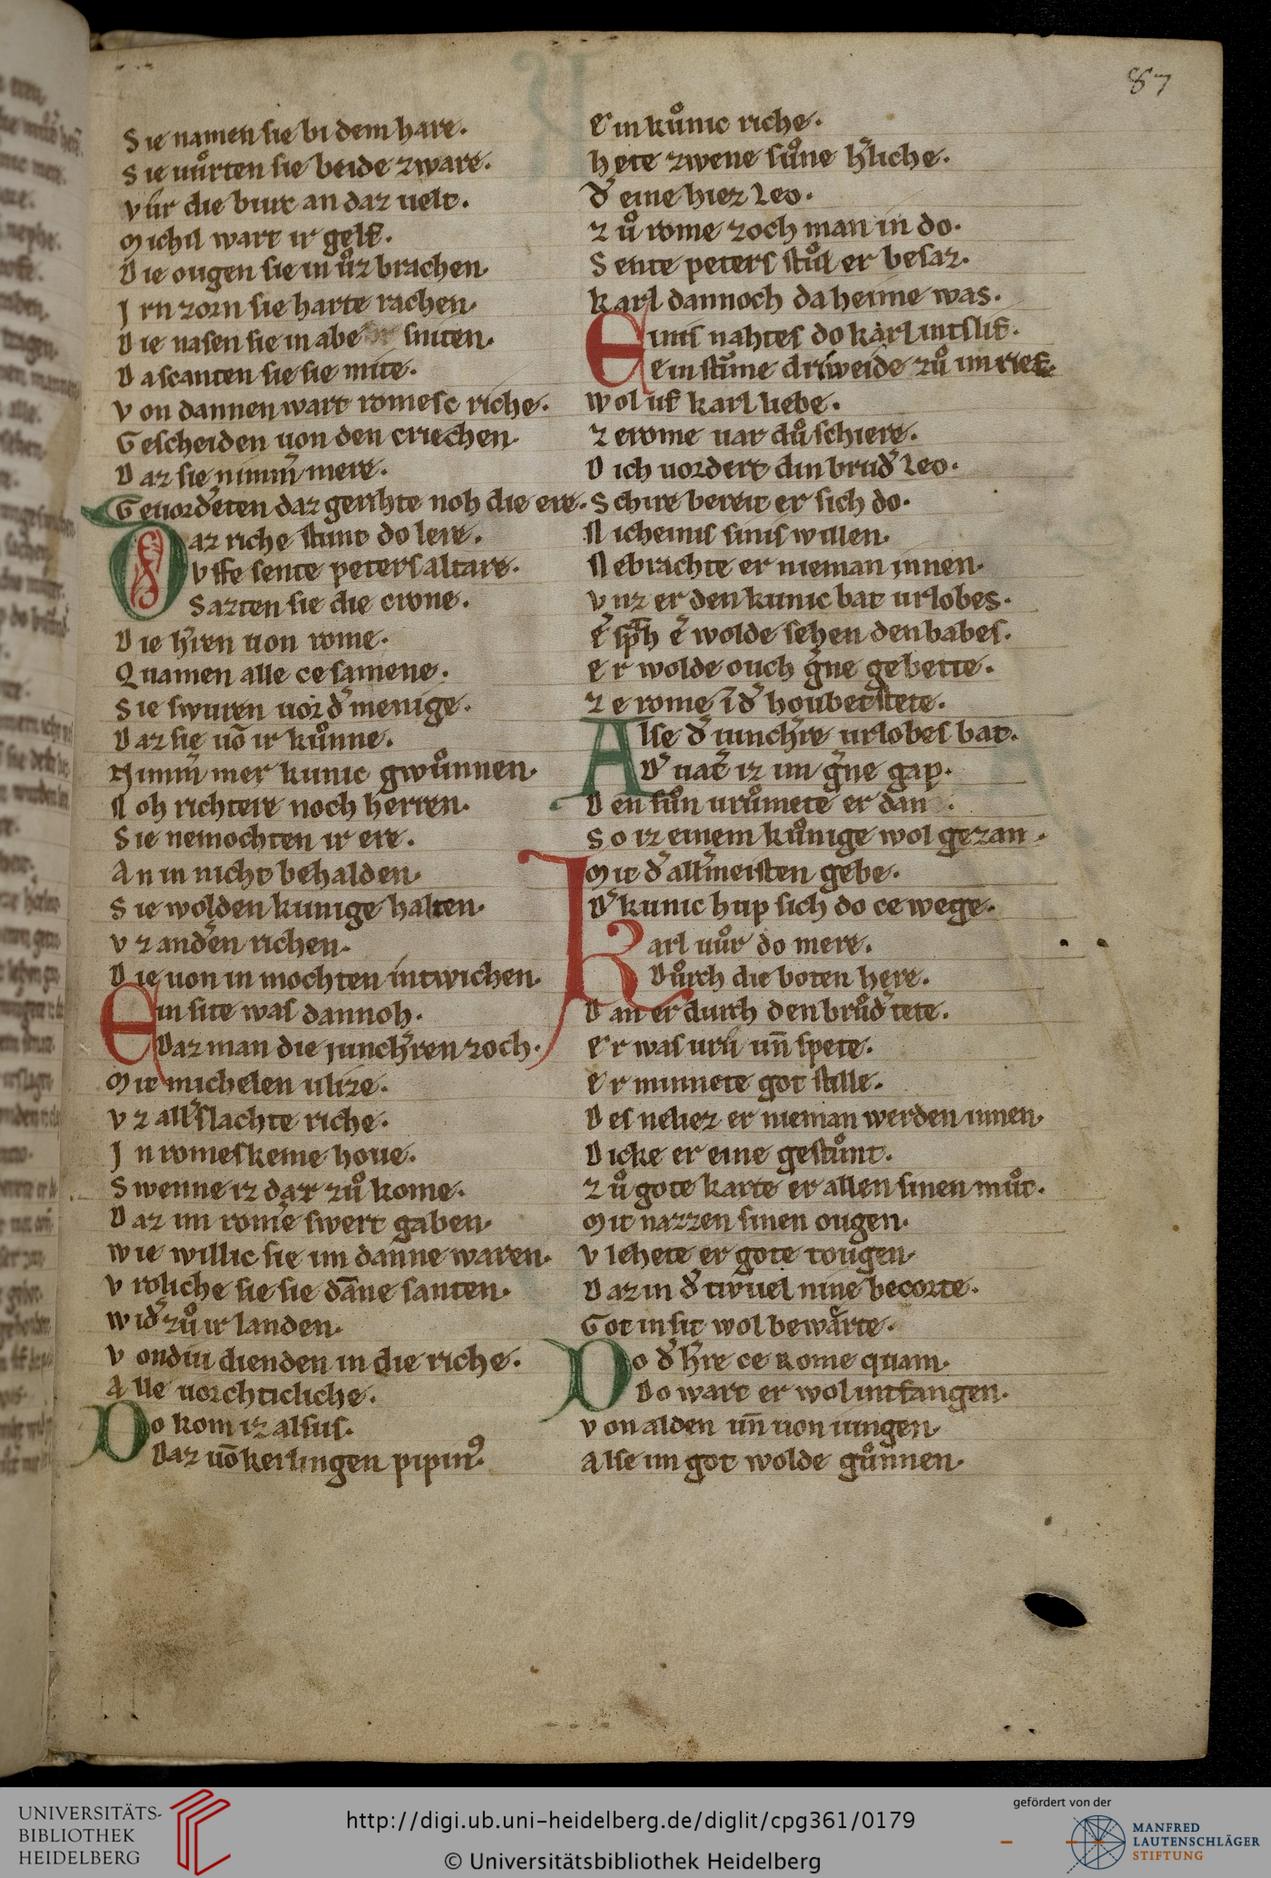 87
Sie namen sie bi dem hare.
Sie uůrten sie beide zware.
Vur die burc an daz uelt.
Michil wart ir gelf.
Die ougen sie in ůz brachen.
Irn zorn sie harte rachen.
Die nasen sie in abe sniten.
Da scanten sie sie mite.
Von dannen wart romesc riche.
Gescheiden uon den criechen.
Daz sie nimm̄ mere.
Geuord̓eten daz gerihte noh die ere.
Daz riche stunt do lere.
Vffe sente peters altare.
Sazten sie die crone.
Die h̓ren uon rome.
Quamen alle ce samene.
Sie swuren uor d̓ menige.
Daz sie uō ir kůnne.
Nimm̓ mer kunic gwůnnen.
Noh richtere noch herren.
Sie nemochten ir ere.
An in nicht behalden.
Sie wolden kunige halten.
Vz and̓en richen.
Die uon in mochten intwichen.
Ein site was dannoh.
Daz man die junch̓ren zoch.
Mit michelen ulize.
Vz all̓slachte riche.
In romeskeme houe.
Swenne iz dar zů kome.
Daz im rom̓e swert gaben.
Wie willic sie im danne waren.
Vroliche sie sie dāne santen.
Wid̓ zů ir landen.
Vondiu dienden in die riche.
Alle uorchticliche.
Do kom iz alsus.
Daz uō kerlingen pipin⁹.
Ein kůnic riche.
Hete zwene sůne h̓liche.
D̓ eine hiez Leo.
Zů rome zoch man in do.
Sente peters stůl er besaz.
Karl dannoch da heime was.
Einis nahtes do karl intslif.
Ein stūme driweide zů im rief.
Wol uf karl liebe.
Ze rome uar dů schiere.
Dich uordert din brud̓ Leo.
Schire bereit er sich do.
Nicheinis sinis willen.
Nebrachte er nieman innen.
Vnz er den kunic bat urlobes.
Er sp̄h er wolde sehen den babes.
Er wolde ouch g̓ne gebette.
Ze rome ī d̓ houbetstete.
Alse d̓ iunch̓re urlobes bat.
D̓ uat̓ iz im g̓ne gap.
Den sůn urůmete er dan
So iz einem kůnige wol gezan.
Mit d̓ all̓meisten gebe.
D̓ kunic hup sich do ce wege.
Karl uůr do mere.
Důrch die boten here.
Dan er durch den brůd̓ tete.
Er was urů uñ spete.
Er minnete got stille.
Des neliez er nieman werden innen.
Dicke er eine gestůnt.
Zů gote karte er allen sinen můt.
Mit nazzen sinen ougen.
Vlehete er gote tougen.
Daz in d̓ tiuuel nine becorte.
Got in sit wol bewarte.
Do d̓ h̓re ce Rome quam.
Do wart er wol intfangen.
Von alden uñ uon iungen.
Alse im got wolde gůnnen.
UNIVERSITÄTS-
BIBLIOTHEK
HEIDELBERG
http://digi.ub.uni-heidelberg.de/diglit/cpg361/0179
© Universitätsbibliothek Heidelberg
gefördert von der
MANFRED
LAUTENSCHLÄGER
STIFTUNG